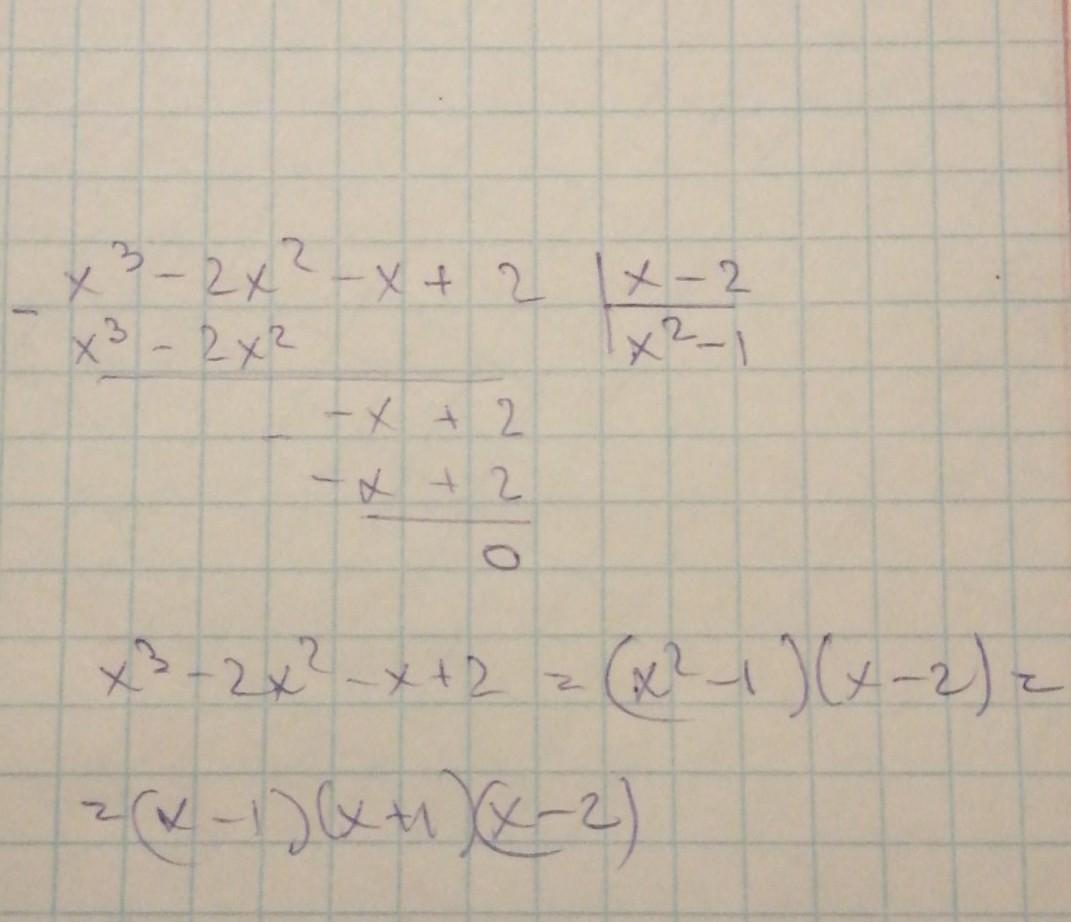 x³ - 2x² - x + 2 | x - 2
- x³ - 2x² | x² - 1
- x + 2
- - x + 2
0
x³ - 2x² - x + 2 = (x² - 1)(x - 2) =
= (x - 1)(x + 1)(x - 2)